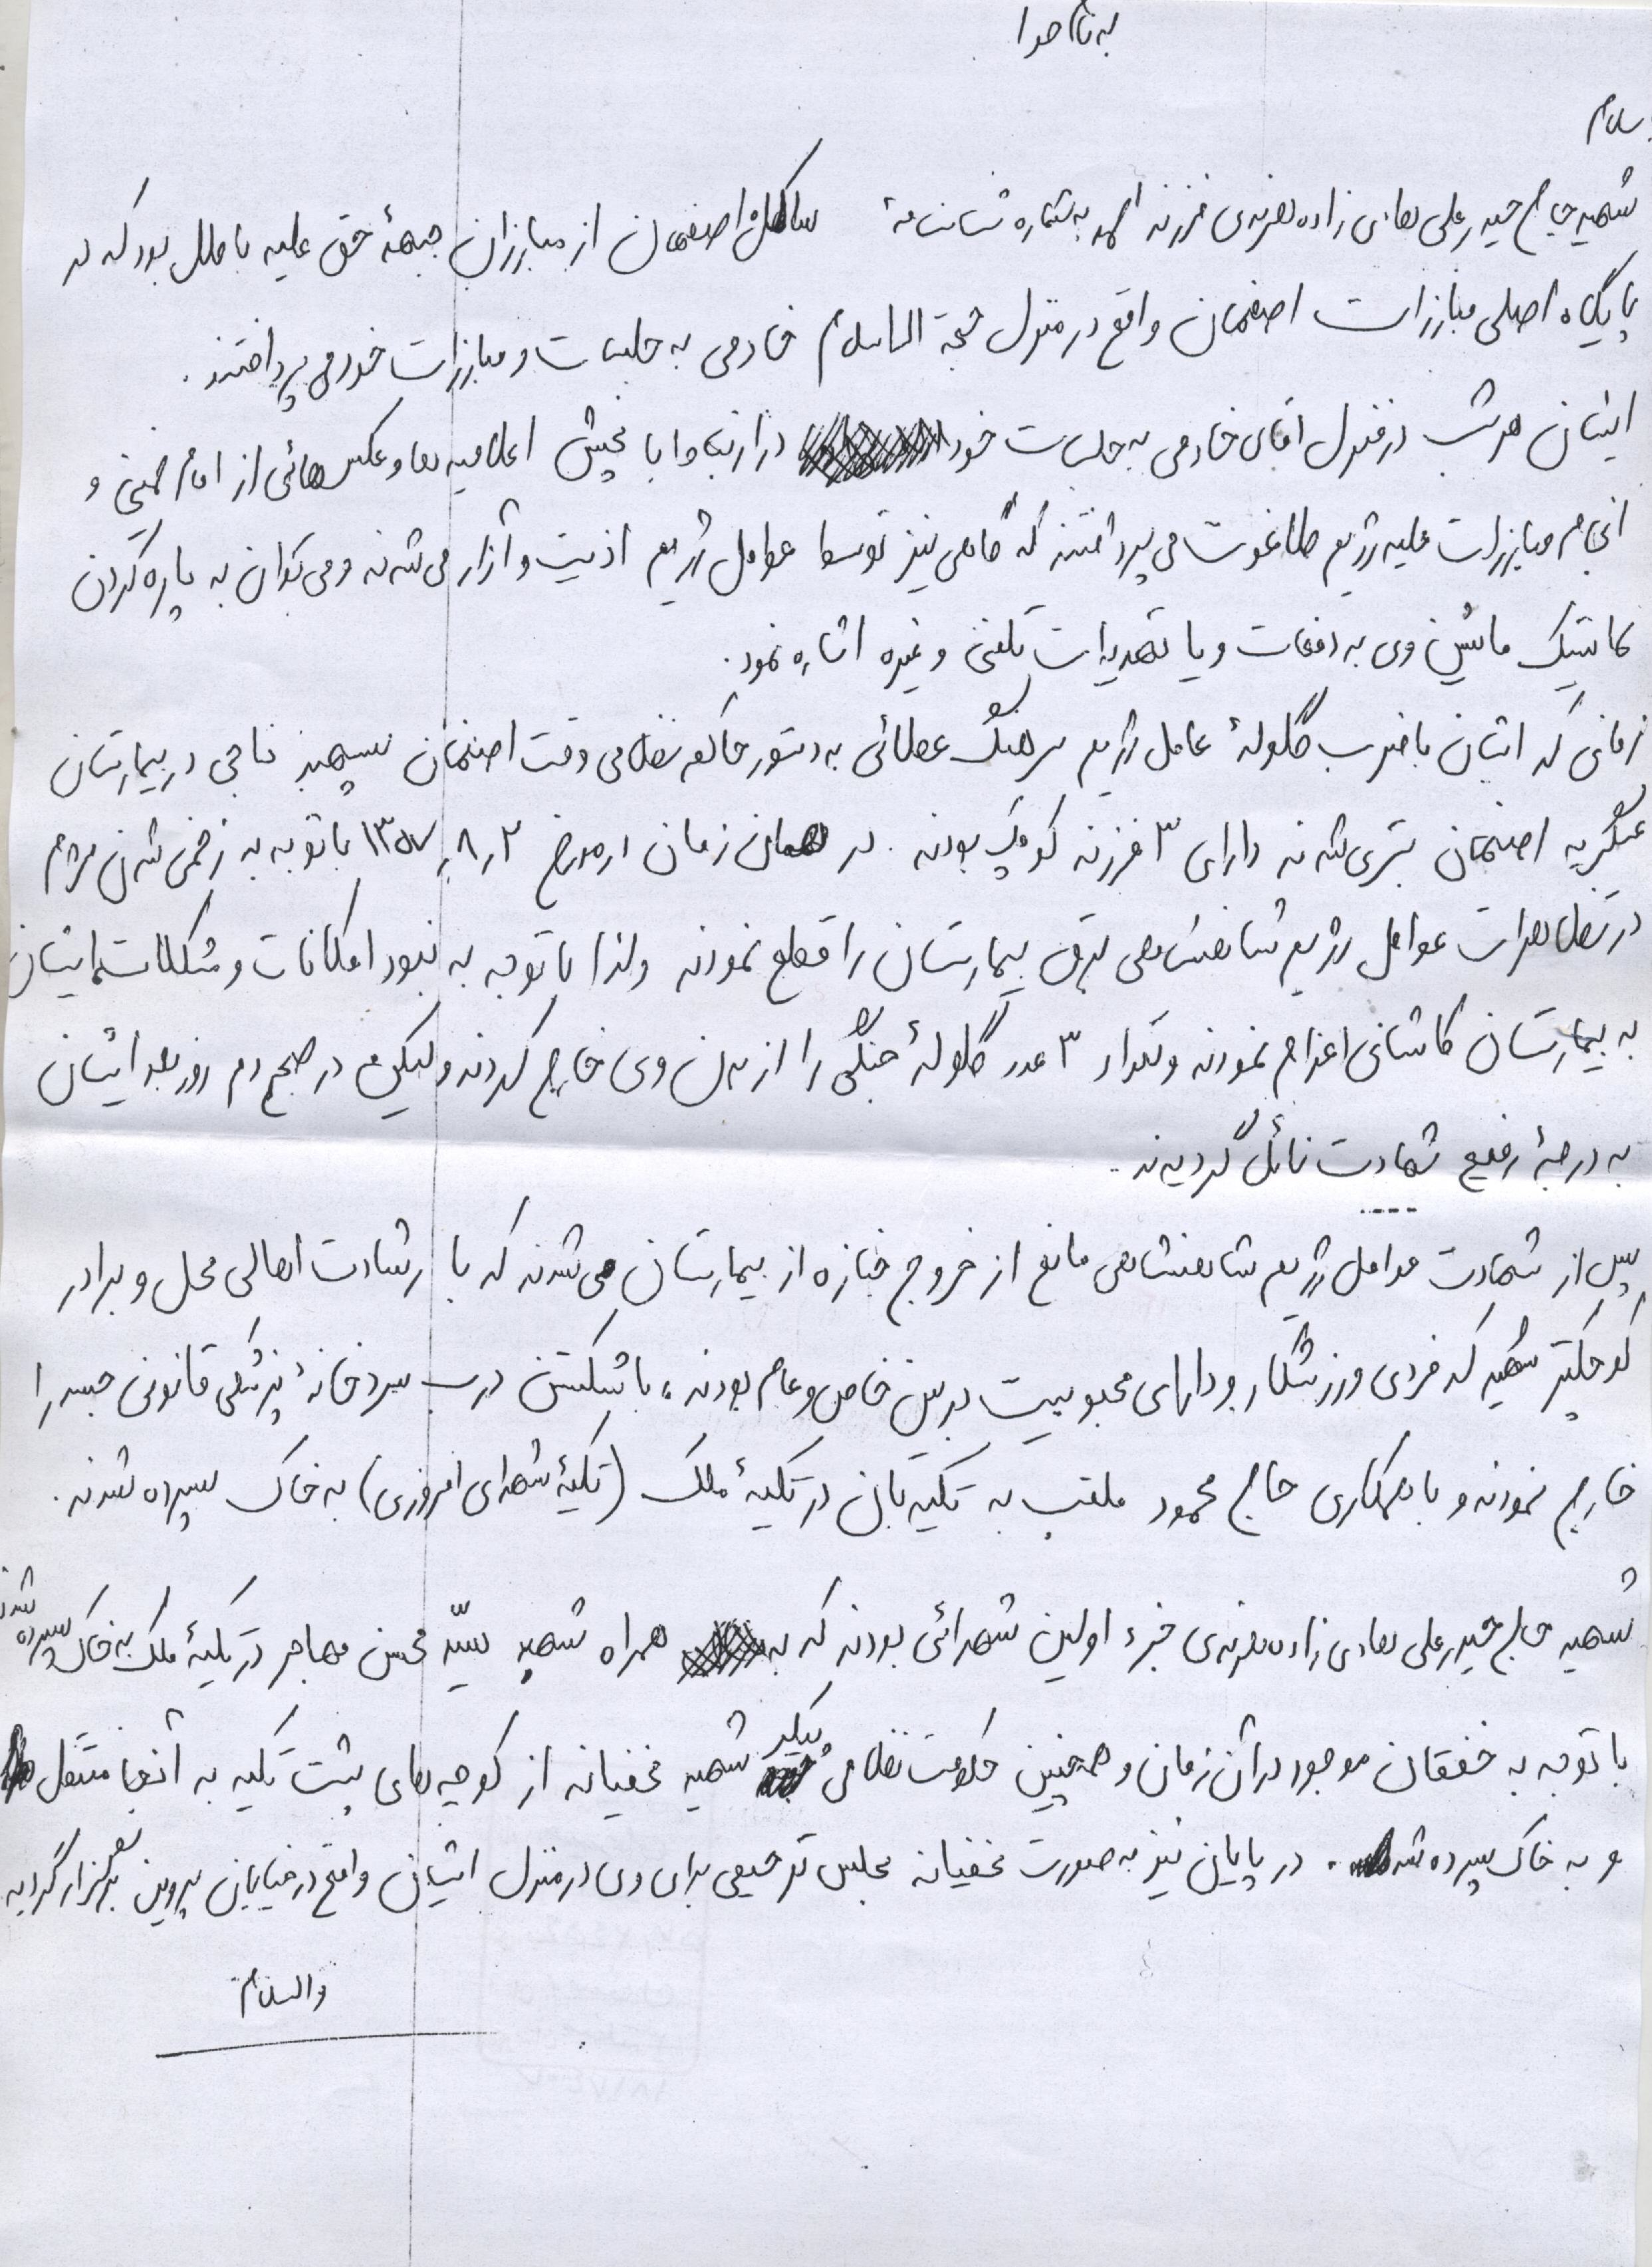 به نام خدا
سلام
شهید حاج حیدرعلی هادی زاده نصرندی فرزند احمد به شماره شناسنامهٔ ساکن اصفهان از مبارزان جبههٔ حق علیه باطل بود که در
پایگاه اصلی مبارزات اصفهان واقع در منزل حجة الاسلام خادمی به جلسات و مبارزات خود می پرداختند.
ایشان هر شب در منزل آقای خادمی به جلسات خود در ارتباط با پخش اعلامیه ها و عکس هائی از امام خمینی و
انجام مبارزات علیه رژیم طاغوت می پرداختند که گاهی نیز توسط عوامل رژیم اذیت و آزار می شدند و می توان به پاره کردن
لاستیک ماشین وی به دفعات و یا تهدیدات تلفنی و غیره اشاره نمود.
زمانی که ایشان با ضرب گلولهٔ عامل رژیم سرهنگ عطائی به دستور حاکم نظامی وقت اصفهان سپهبد ناجی در بیمارستان
عسگریه اصفهان بستری شدند دارای ۳ فرزند کوچک بودند. در همان زمان در مورخ ۲ر۸ر۱۳۵۷ با توجه به زخمی شدن مردم
در تظاهرات عوامل رژیم شاهنشاهی برق بیمارستان را قطع نمودند ولذا با توجه به نبود امکانات و مشکلات ایشان
به بیمارستان کاشانی اعزام نمودند و تعداد ۳ عدد گلولهٔ جنگی را از بدن وی خارج کردند ولیکن در صبح دم روز بعد ایشان
به درجهٔ رفیع شهادت نائل گردیدند..
پس از شهادت عوامل رژیم شاهنشاهی مانع از خروج جنازه از بیمارستان می شدند که با رشادت اهالی محل و برادر
کوچکتر شهید که فردی ورزشکار و دارای محبوبیت در بین خاص و عام بودند، با شکستن درب سردخانهٔ پزشکی قانونی جسد را
خارج نمودند و با همکاری حاج محمود ملقب به تکیه بان در تکیهٔ ملک (تکیهٔ شهدای امروزی) به خاک سپرده شدند.
شهید حاج حیدرعلی هادی زاده نصرندی جزء اولین شهدائی بودند که به همراه شهید سیّد محسن مهاجر در تکیهٔ ملک به خاک سپرده شدند
با توجه به خفقان موجود در آن زمان و همچنین حکومت نظامی پیکر شهید مخفیانه از کوچه های پشت تکیه به آنجا منتقل
و به خاک سپرده شد. در پایان نیز به صورت مخفیانه مجلس ترحیمی برای وی در منزل ایشان واقع در خیابان پروین برگزار گردید
والسلام